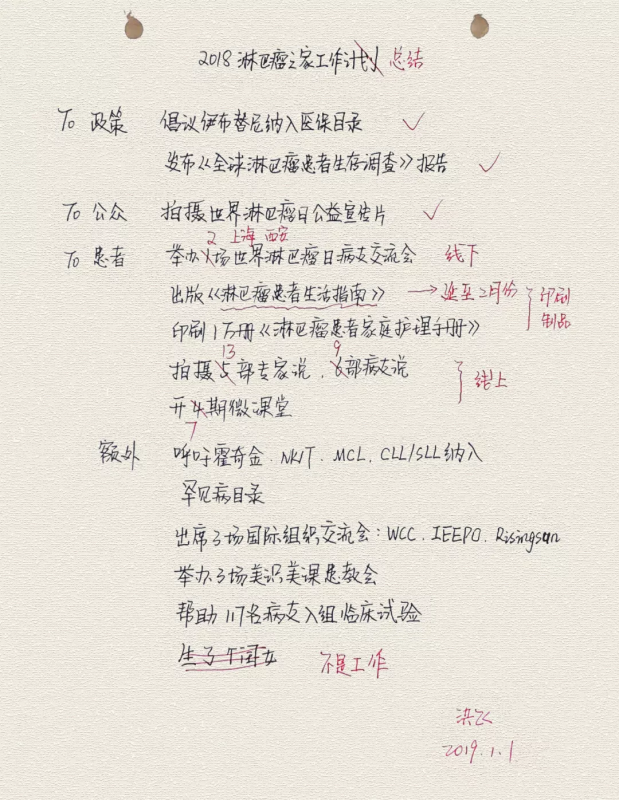 2018淋巴瘤之家工作计划 总结
To 政策 倡议伊布替尼纳入医保目录 ✓
发布《全球淋巴瘤患者生存调查》报告 ✓
To 公众 拍摄世界淋巴瘤日公益宣传片 ✓
2 上海 西安
To 患者 举办1场世界淋巴瘤日病友交流会 线下
出版《淋巴瘤患者生活指南》 → 延至二月份 印刷
印刷1万册《淋巴瘤患者家庭护理手册》 制品
13 9
拍摄5部专家说、6部病友说
线上
开4期微课堂
7
额外 呼吁霍奇金、NK/T、MCL、CLL/SLL纳入
罕见病目录
出席3场国际组织交流会：WCC、IEEPO、Risingsun
举办3场美识美课患教会
帮助117名病友入组临床试验
生了个闺女 不是工作
洪飞
2019.1.1